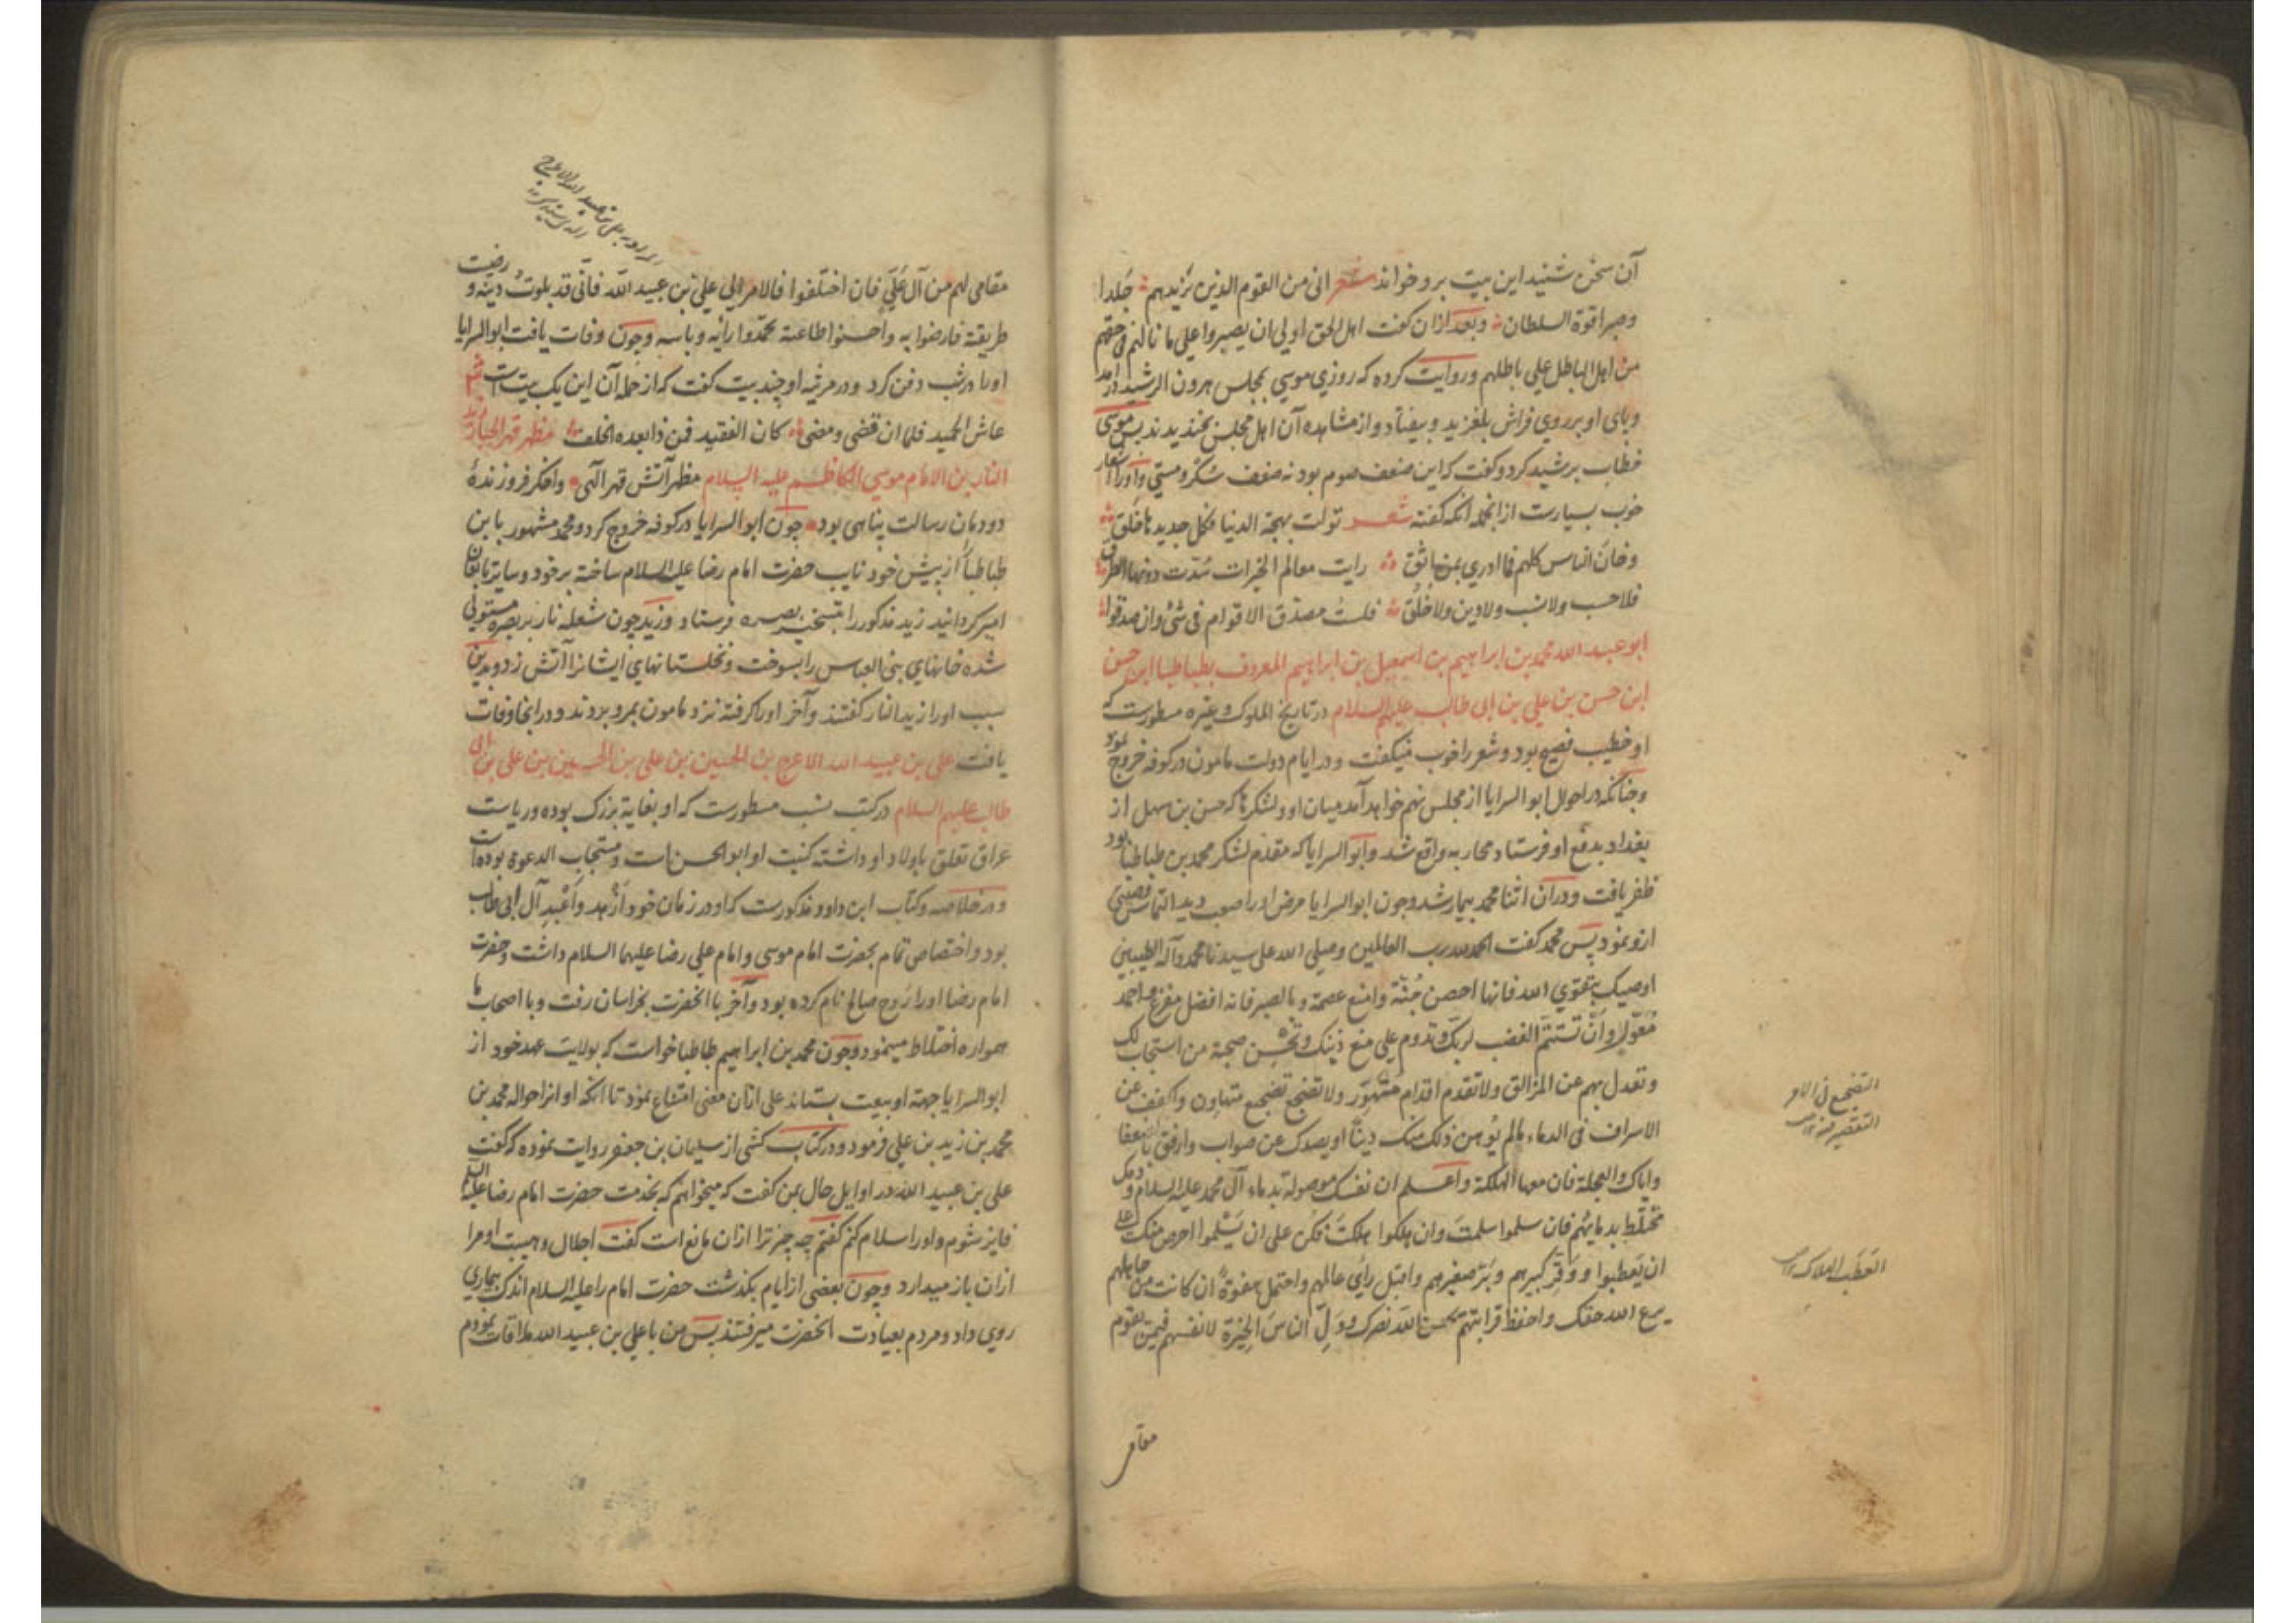 آن سخن شنید این بیت برو خواند شعر انی من القوم الذین تزیدهم جلدا
وصبرا قوة السلطان وبعد ازان گفت اهل الحق اولی ان یصبروا علی ما نالهم فی حقهم
من اهل الباطل علی باطلهم وروایت کرده که روزی موسی بمجلس هرون الرشید درآمد
وپای او بر روی فراش بلغزید وبیفتاد واز مشاهده آن اهل مجلس بخندیدند پس موسی
خطاب برشید کرد وگفت که این ضعف صوم بود نه ضعف سکر ومستی واورا اشعار
خوب بسیارست ازانجمله آنکه گفته شعر تولت بهجة الدنیا فکل جدیدها خلق
وخان الناس کلهم فما ادری بمن اثق رایت معالم الخیرات سدت دونها الطرق
فلا حسب ولا نسب ولا دین ولا خلق فلست مصدق الاقوام فی شئ وان صدقوا
ابو عبد الله محمد بن ابراهیم بن اسمعیل بن ابراهیم المعروف بطباطبا ابن حسن
ابن حسن بن علی بن ابی طالب علیهم السلام در تاریخ الملوک وغیره مسطورست که
او خطیب فصیح بود وشعر را خوب میگفت ودر ایام دولت مامون در کوفه خروج نمود
وچنانکه در احوال ابو السرایا از مجلس نهم خواهد آمد میان او ولشکرها که حسن بن سهل از
بغداد بدفع او فرستاد محاربه واقع شد وابو السرایا که مقدم لشکر محمد بن طباطبا بود
ظفر یافت ودران اثنا محمد بیمار شد وچون ابو السرایا مرض اورا صعب دید التماس وصیتی
ازو نمود پس محمد گفت الحمد لله رب العالمین وصلی الله علی سیدنا محمد وآله الطیبین
اوصیک بتقوی الله فانها احصن جنة وامنع عصمة وبالصبر فانه افضل مفزع واحمد
معول وان تستتم الغضب لربک وتدوم علی منع دینک وتحسن صحبة من استجاب لک
وتعدل بهم عن المزالق ولا تقدم اقدام متهور ولا تضجع تضجیع متهاون واکفف عن
الاسراف فی الدماء ما لم یوهن ذلک منک دینا او یصدک عن صواب وارفق بالضعفا
وایاک والعجلة فان معها الهلکة واعلم ان نفسک موصولة بدماء آل محمد علیه السلام ودمک
مختلط بدمایهم فان سلموا سلمت وان هلکوا هلکت فکن علی ان یسلموا احرص منک علی
ان یعطبوا ووقر کبیرهم وبر صغیرهم واقبل رأی عالمهم واحتمل هفوة ان کانت من جاهلهم
یرع الله حقک واحفظ قرابتهم یحسن الله نصرک وول الناس الخیرة لانفسهم فیمن یقوم
مقامی
التضجیع فی الامر
التقصیر فیه
العطب الهلاک
مقامی لهم من آل علی فان اختلفوا فالامر الی علی بن عبید الله فانی قد بلوت دینه ورضیت
طریقته فارضوا به واحسنوا طاعته تحمدوا رأیه وباسه وچون وفات یافت ابو السرایا
اورا در شب دفن کرد ودر مرثیه او چند بیت گفت که از جمله آن این یک بیت است شعر
عاش الحمید فلما ان قضی ومضی کان الفقید فمن ذا بعده الخلف مظهر قهر الجبار زید
النار بن الامام موسی الکاظم علیه السلام مظهر آتش قهر آلهی واخگر فروزندهٔ
دودمان رسالت پناهی بود چون ابو السرایا در کوفه خروج کرد ومحمد مشهور بابن
طباطبا از پیش خود نایب حضرت امام رضا علیه السلام ساخته بر خود وسایر تابعان
امیر گردانید زید مذکور را بتسخیر بصره فرستاد وزید چون شعله نار بر بصره مستولی
شده خانهای بنی العباس را بسوخت ونخلستانهای ایشانرا آتش زد وبدین
سبب اورا زید النار گفتند وآخر اورا گرفته نزد مامون بمرو بردند ودر انجا وفات
یافت علی بن عبید الله الاعرج بن الحسین بن علی بن الحسین بن علی بن ابی
طالب علیهم السلام در کتب نسب مسطورست که او بغایة بزرک بوده وریاست
عراق تعلق باولاد او داشته کنیت او ابو الحسن است ومستجاب الدعوة بوده است
ودر خلاصه وکتاب ابن داود مذکورست که او در زمان خود ازهد واعبد آل ابی طالب
بود واختصاص تمام بحضرت امام موسی وامام علی رضا علیهما السلام داشت وحضرت
امام رضا اورا زوج صالح نام کرده بود وآخر با انحضرت بخراسان رفت وبا اصحاب ما
همواره اختلاط مینمود وچون محمد بن ابراهیم طباطبا خواست که بولایت عهد خود از
ابو السرایا جهة او بیعت بستاند علی ازان معنی امتناع نمود تا آنکه او انرا حواله محمد بن
محمد بن زید بن علی فرمود ودر کتاب کشی از سلیمان بن جعفر روایت نموده که گفت
علی بن عبید الله در اوایل حال بمن گفت که میخواهم که بخدمت حضرت امام رضا علیه السلام
فایز شوم واورا سلام کنم گفتم چه چیز ترا ازان مانع است گفت اجلال وهیبت او مرا
ازان باز میدارد وچون بعضی از ایام بگذشت حضرت امام را علیه السلام اندک بیماری
روی داد ومردم بعیادت انحضرت میرفتند پس من با علی بن عبید الله ملاقات نمودم